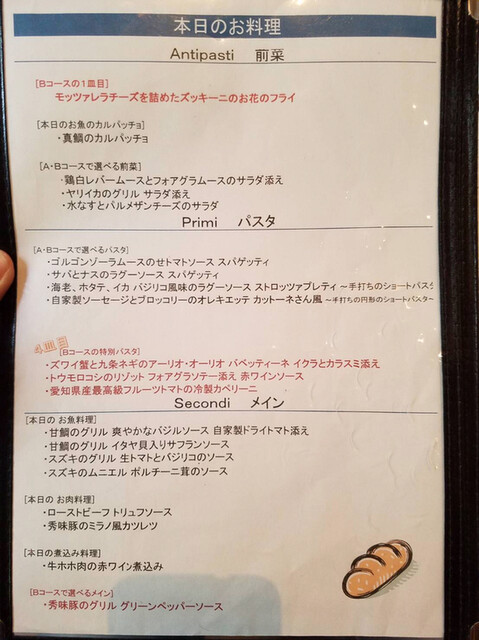 本日のお料理
Antipasti 前菜
[Bコースの1皿目]
モッツァレラチーズを詰めたズッキーニのお花のフライ
[本日のお魚のカルパッチョ]
・真鯛のカルパッチョ
[A・Bコースで選べる前菜]
・鶏白レバームースとフォアグラムースのサラダ添え
・ヤリイカのグリル サラダ添え
・水なすとパルメザンチーズのサラダ
Primi パスタ
[A・Bコースで選べるパスタ]
・ゴルゴンゾーラムースのせトマトソース スパゲッティ
・サバとナスのラグーソース スパゲッティ
・海老、ホタテ、イカ バジリコ風味のラグーソース ストロッツァプレティ ～手打ちのショートパスタ
・自家製ソーセージとブロッコリーのオレキエッテ カットーネさん風 ～手打ちの円形のショートパスタ～
4皿目
[Bコースの特別パスタ]
・ズワイ蟹と九条ネギのアーリオ・オーリオ バベッティーネ イクラとカラスミ添え
・トウモロコシのリゾット フォアグラソテー添え 赤ワインソース
・愛知県産最高級フルーツトマトの冷製カペリーニ
Secondi メイン
[本日の お魚料理]
・甘鯛のグリル 爽やかなバジルソース 自家製ドライトマト添え
・甘鯛のグリル イタヤ貝入りサフランソース
・スズキのグリル 生トマトとバジリコのソース
・スズキのムニエル ポルチーニ茸のソース
[本日の お肉料理]
・ローストビーフ トリュフソース
・秀味豚のミラノ風カツレツ
[本日の煮込み料理]
・牛ホホ肉の赤ワイン煮込み
[Bコースで選べるメイン]
・秀味豚のグリル グリーンペッパーソース